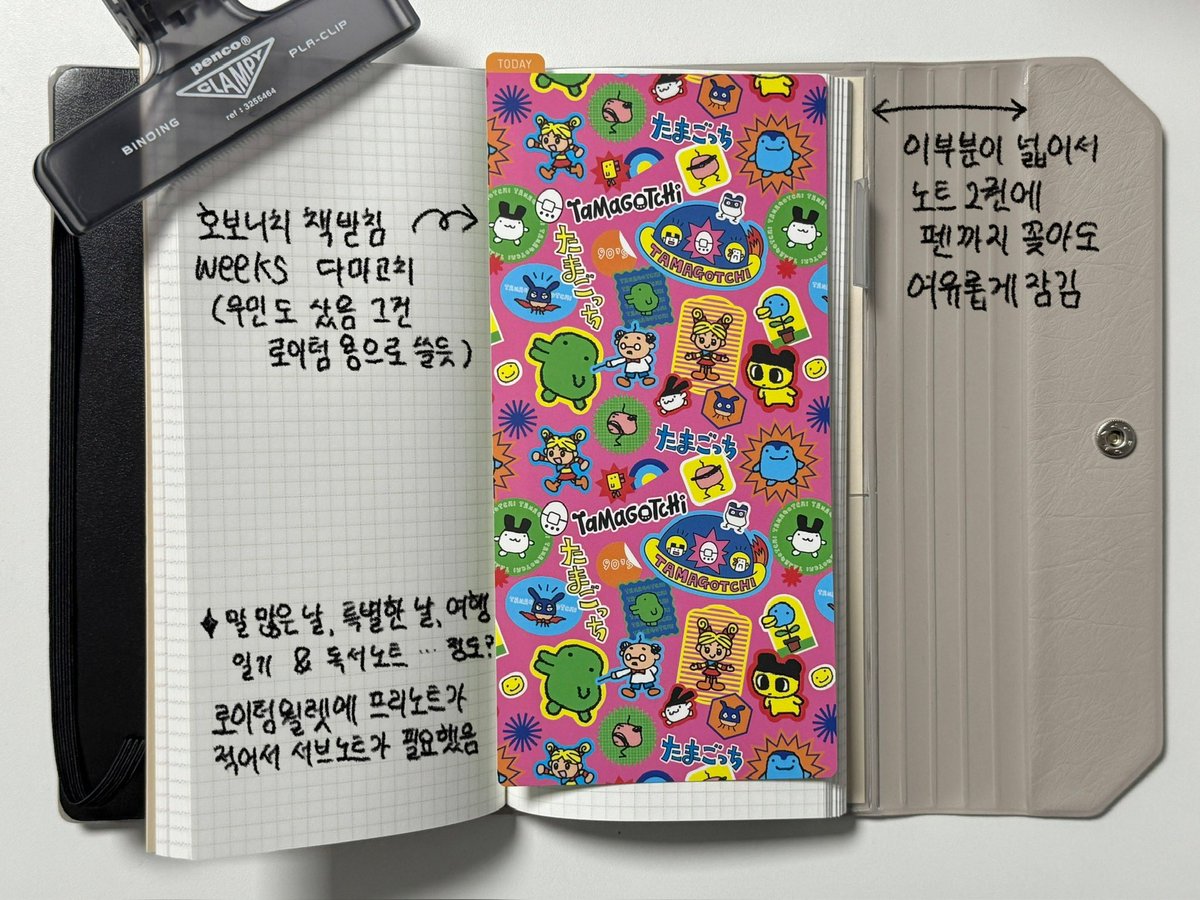 penco®
CLAMPY
PLA-CLIP
BINDING
ref : 3255464
TODAY
호보니치 책받침
weeks 다마고치
(우먼도 샀음 그건
로이텀 용으로 쓸듯)
◆ 말 많은 날, 특별한 날, 여행
일기 & 독서노트 … 정도?
로이텀윌렛에 프리노트가
적어서 서브노트가 필요했음
たまごっち
TAMAGOTCHi
たまごっち
90's
TAMAGOTCHI
たまごっち
TAMAGOTCHi
たまごっち
90's
TAMAGOTCHI
たまごっち
이부분이 넓어서
노트 2권에
펜까지 꽂아도
여유롭게 잠김